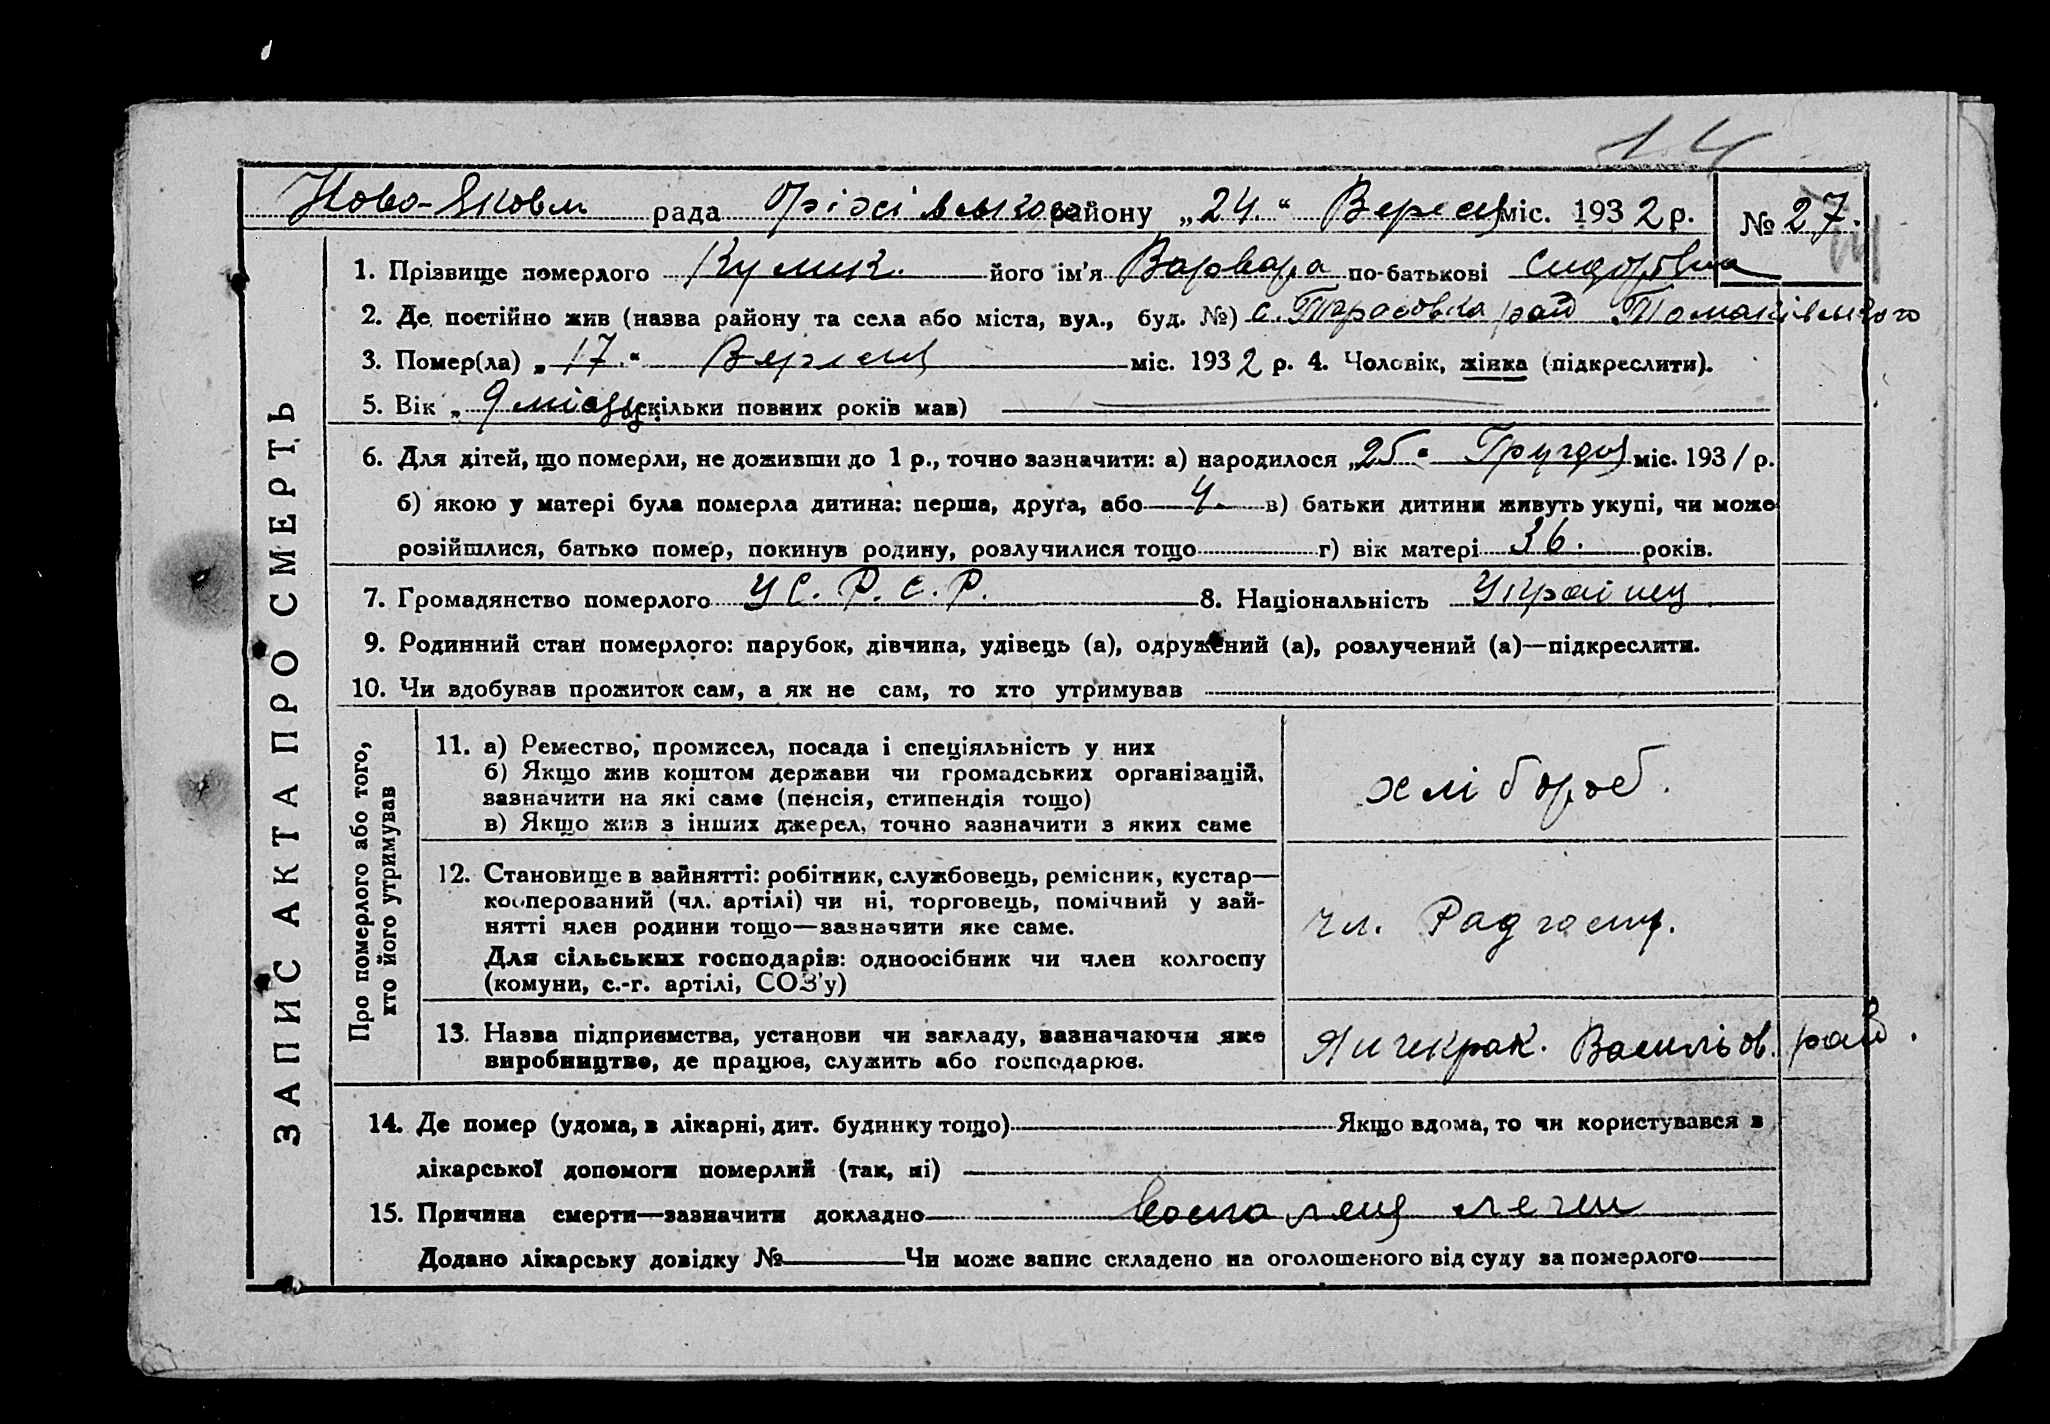 14
Ново-Яковл рада Оріхівського району „24.“ Вересня міс. 1932 р. № 27.
1. Прізвище померлого Кулик. його ім'я Варвара по-батькові Сидоровна
2. Де постійно жив (назва району та села або міста, вул., буд. №) с. Тарасовка рай Томаківського
3. Помер(ла) „17“ Вересня міс. 1932 р. 4. Чоловік, жінка (підкреслити).
5. Вік „9 місяц скільки повних років мав)
6. Для дітей, що померли, не доживши до 1 р., точно зазначити: а) народилося „25“ Грудня міс. 1931 р.
б) якою у матері була померла дитина: перша, друга, або 4. в) батьки дитини живуть укупі, чи може
розійшлися, батько помер, покинув родину, розлучилися тощо г) вік матері 36. років.
7. Громадянство померлого У С. Р. С. Р. 8. Національність Українец
9. Родинний стан померлого: парубок, дівчина, удівець (а), одружений (а), розлучений (а)—підкреслити.
10. Чи здобував прожиток сам, а як не сам, то хто утримував
ЗАПИС АКТА ПРО СМЕРТЬ
Про померлого або того,
хто його утримував
11. а) Ремество, промисел, посада і спеціяльність у них
б) Якщо жив коштом держави чи громадських організацій,
зазначити на які саме (пенсія, стипендія тощо)
в) Якщо жив з інших джерел, точно зазначити з яких саме
хлібороб.
12. Становище в зайнятті: робітник, службовець, ремісник, кустар—
кооперований (чл. артілі) чи ні, торговець, помічний у зай-
нятті член родини тощо—зазначити яке саме.
Для сільських господарів: одноосібник чи член колгоспу
(комуни, с.-г. артілі, СОЗ'у)
чл. Радгосп.
13. Назва підприємства, установи чи закладу, зазначаючи яке
виробництво, де працює, служить або господарює.
Янчекрак. Васильов. рай.
14. Де помер (удома, в лікарні, дит. будинку тощо) Якщо вдома, то чи користувався з
лікарської допомоги померлий (так, ні)
15. Причина смерти—зазначити докладно воспаленя легки
Додано лікарську довідку № Чи може запис складено на оголошеного від суду за померлого